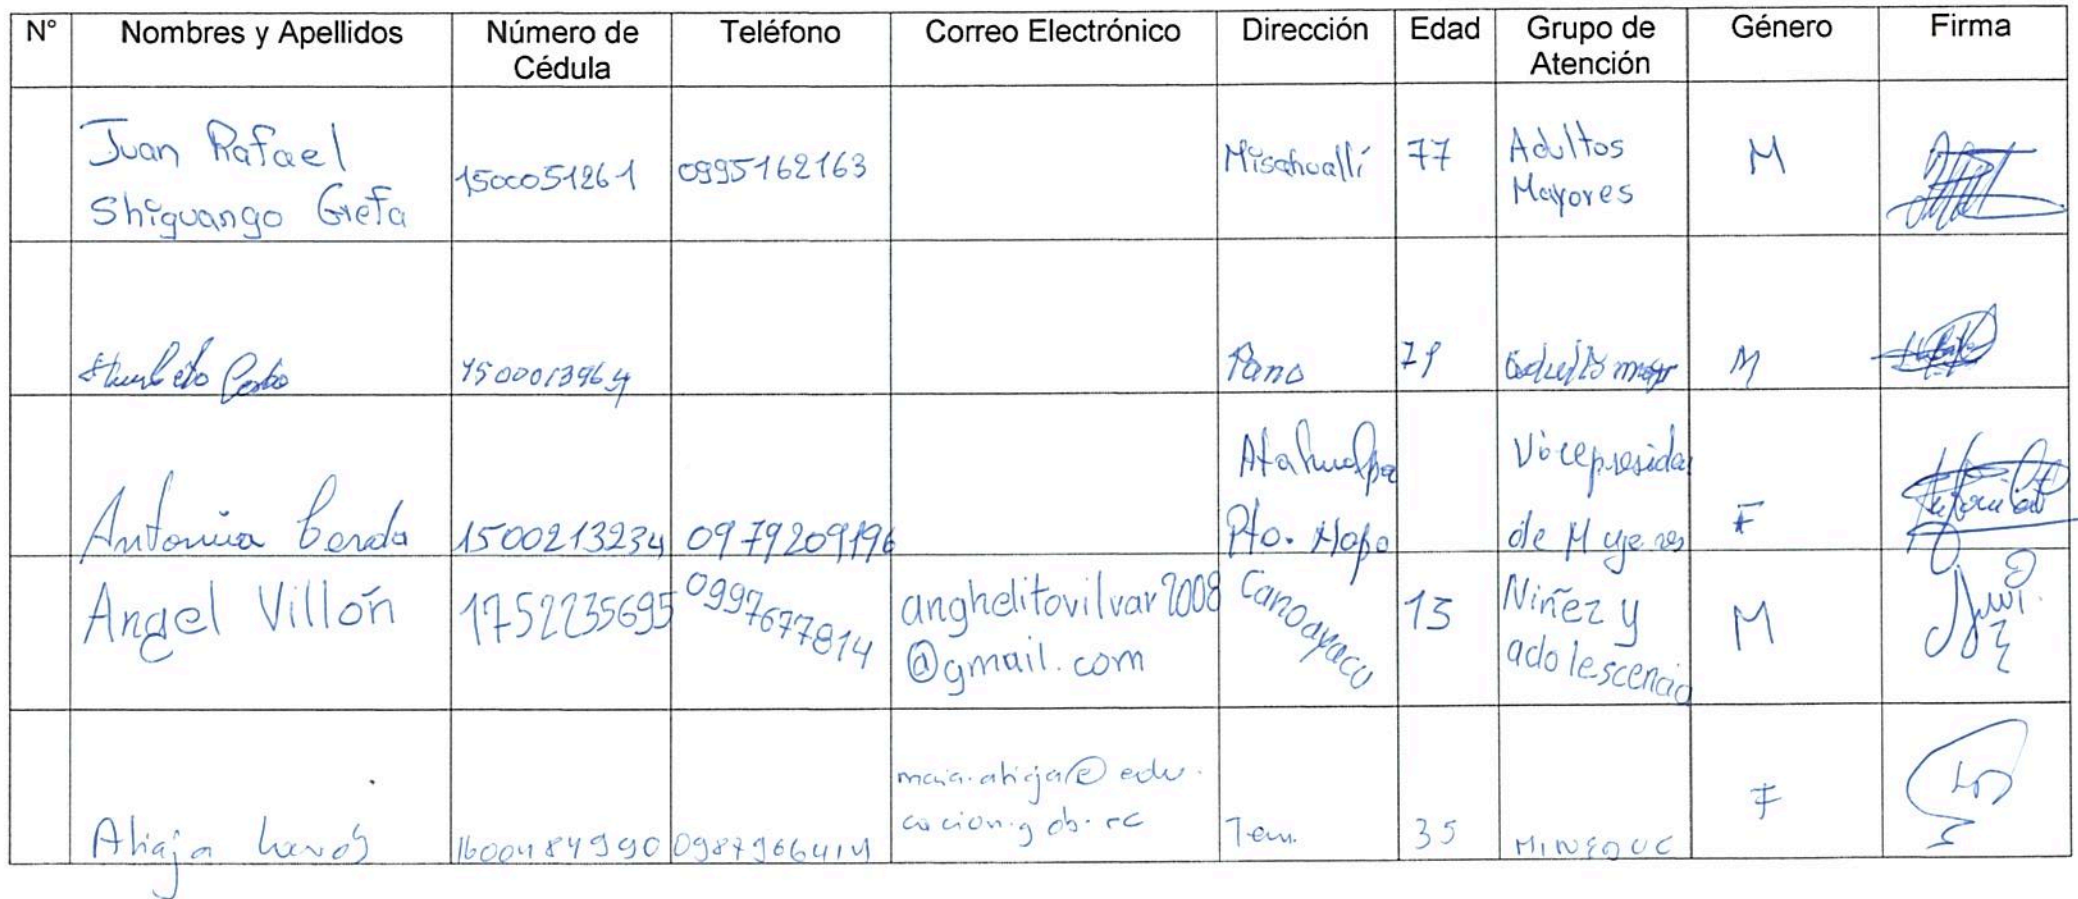 N° Nombres y Apellidos Número de Cédula Teléfono Correo Electrónico Dirección Edad Grupo de Atención Género Firma
Juan Rafael Shiguango Grefa 1500051261 0995162163 Misahuallí 77 Adultos Mayores M
1500013964 Pano M
Antonia Cerda 1500213234 0979209196 Atahualpa Pto. Napo Vicepresida de Mujeres F
Angel Villón 1752235695 0997677814 anghelitovilvar2008@gmail.com Canoayacu 15 Niñez y adolescencia M
1600484990 Tena 35 MINEDUC F